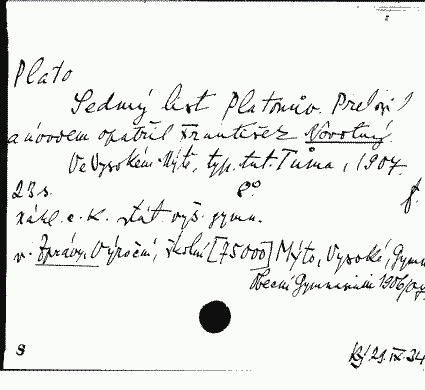 Plato
Sedmý list Platonův. Přeložil
a úvodem opatřil František Novotný.
Ve Vysokém Mýtě, typ. tat. Tůma, 1907.
23 s. 8° f.
nákl. c. k. stát. vyš. gymn.
v. Zprávy, Výroční, školní [75000] Mýto, Vysoké, Gymn
Obecní Gymnasium 1906/07
S 29.IX.34